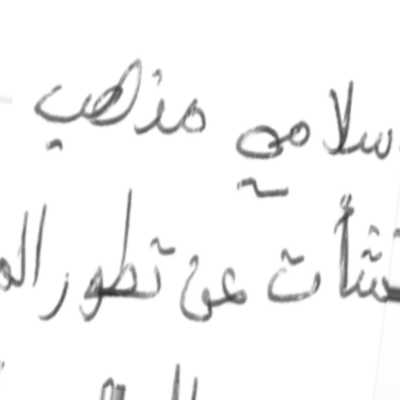 سلامي مذهب
نشأت عن تطور